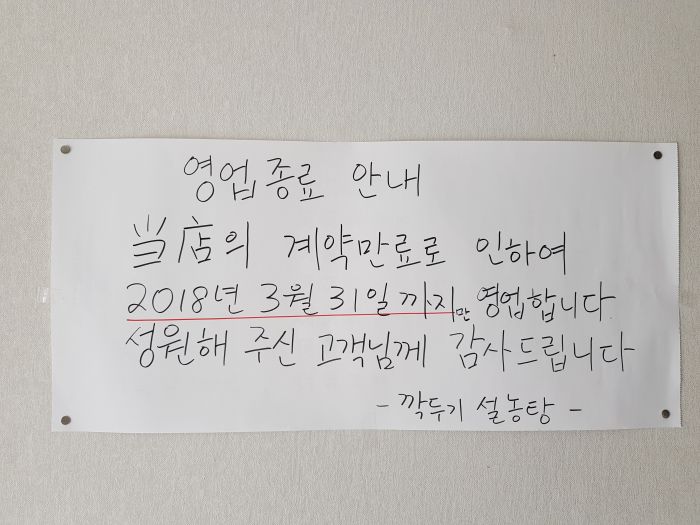 영업종료 안내
当店의 계약만료로 인하여
2018년 3월 31일 까지만 영업합니다.
성원해 주신 고객님께 감사드립니다
- 깍두기 설농탕 -